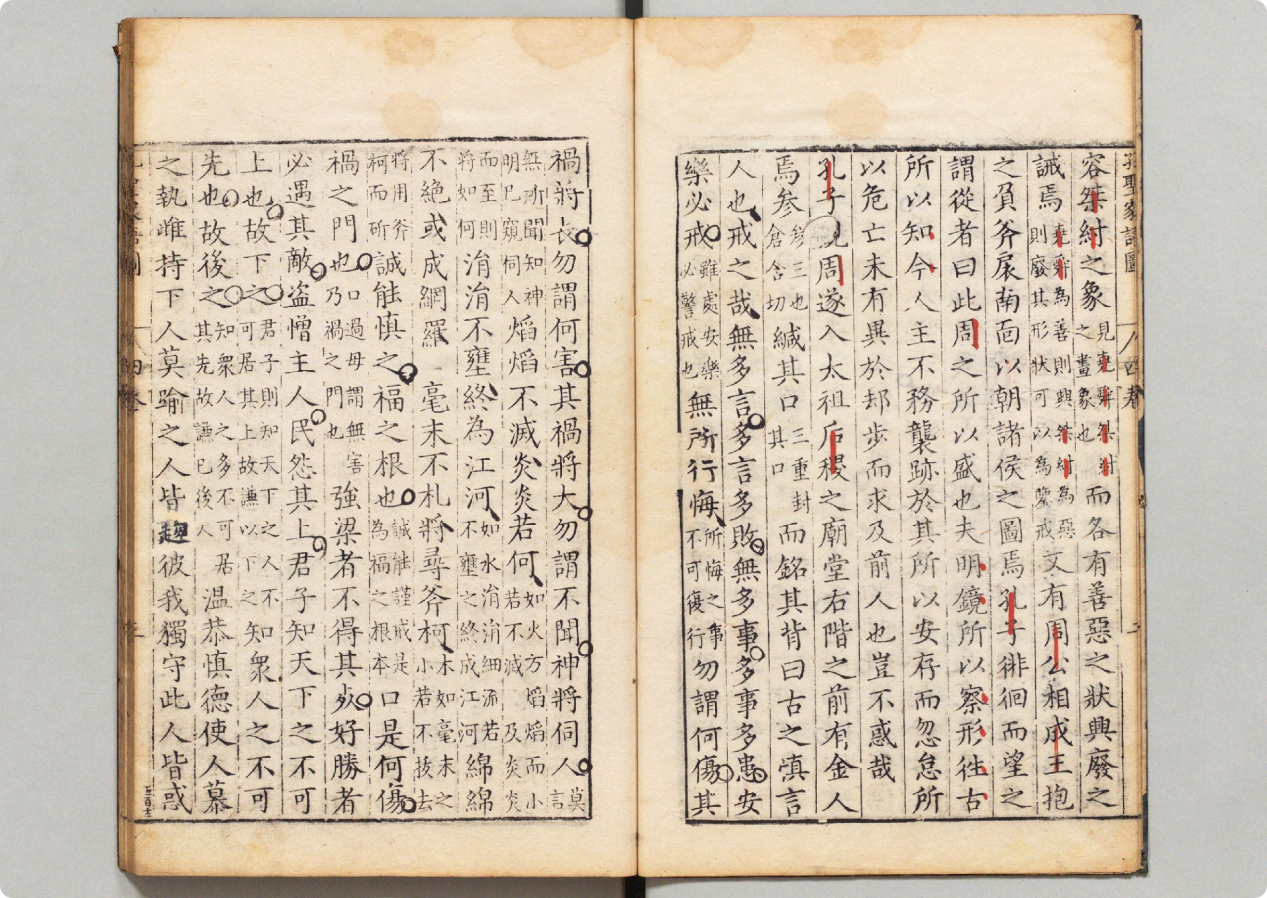 孔聖家語圖　八四卷　二
容桀紂之象見堯舜桀紂之畫象也而各有善惡之狀興廢之
誡焉堯舜為善則興桀紂為惡則廢其形狀可以為鑒戒又有周公相成王抱
之負斧扆南面以朝諸侯之圖焉孔子徘徊而望之
謂從者曰此周之所以盛也夫明鏡所以察形徃古
所以知今人主不務襲跡於其所以安存而忽怠所
以危亡未有異於却步而求及前人也豈不惑哉
孔子觀周遂入太祖后稷之廟堂右階之前有金人
焉參叅三也倉含切緘其口三重封其口而銘其背曰古之慎言
人也戒之哉無多言多言多敗無多事多事多患安
樂必戒雖處安樂必警戒也無所行悔所悔之事不可復行勿謂何傷其
禍將長勿謂何害其禍將大勿謂不聞神將伺人莫言
無所聞知神明已窺伺人焰焰不滅炎炎若何如火方焰焰而小若不滅及炎炎
而至則將如何涓涓不壅終為江河如水涓涓細流若不壅之終成江河綿綿
不絕或成網羅毫末不札將尋斧柯木如毫末之小若不拔去
將用斧柯而斫誠能慎之福之根也誠能謹戒是為福之根本口是何傷
禍之門也口過毋謂無害乃禍之門也強梁者不得其死好勝者
必遇其敵盗憎主人民怨其上君子知天下之不可
上也故下之君子則知天下之人不可居其上故謙以下之知衆人之不可
先也故後之知衆人之多不可居其先故謙已後人溫恭慎德使人慕
之執雌持下人莫踰之人皆趨彼我獨守此人皆惑